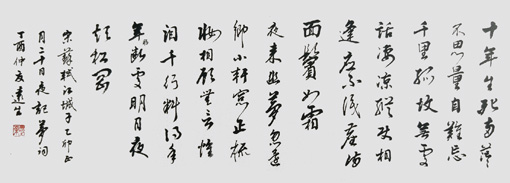 十年生死兩茫
不思量自難忘
千里孤墳無處
話凄凉縱使相
逢應不識塵滿
面鬢如霜
夜來幽夢忽還
鄉小軒窗正梳
妝相顧無言惟
淚千行料得年
年腸斷處明月夜
短松岡
宋蘇軾江城子乙卯正
月二十日夜記夢詞
丁酉仲夏